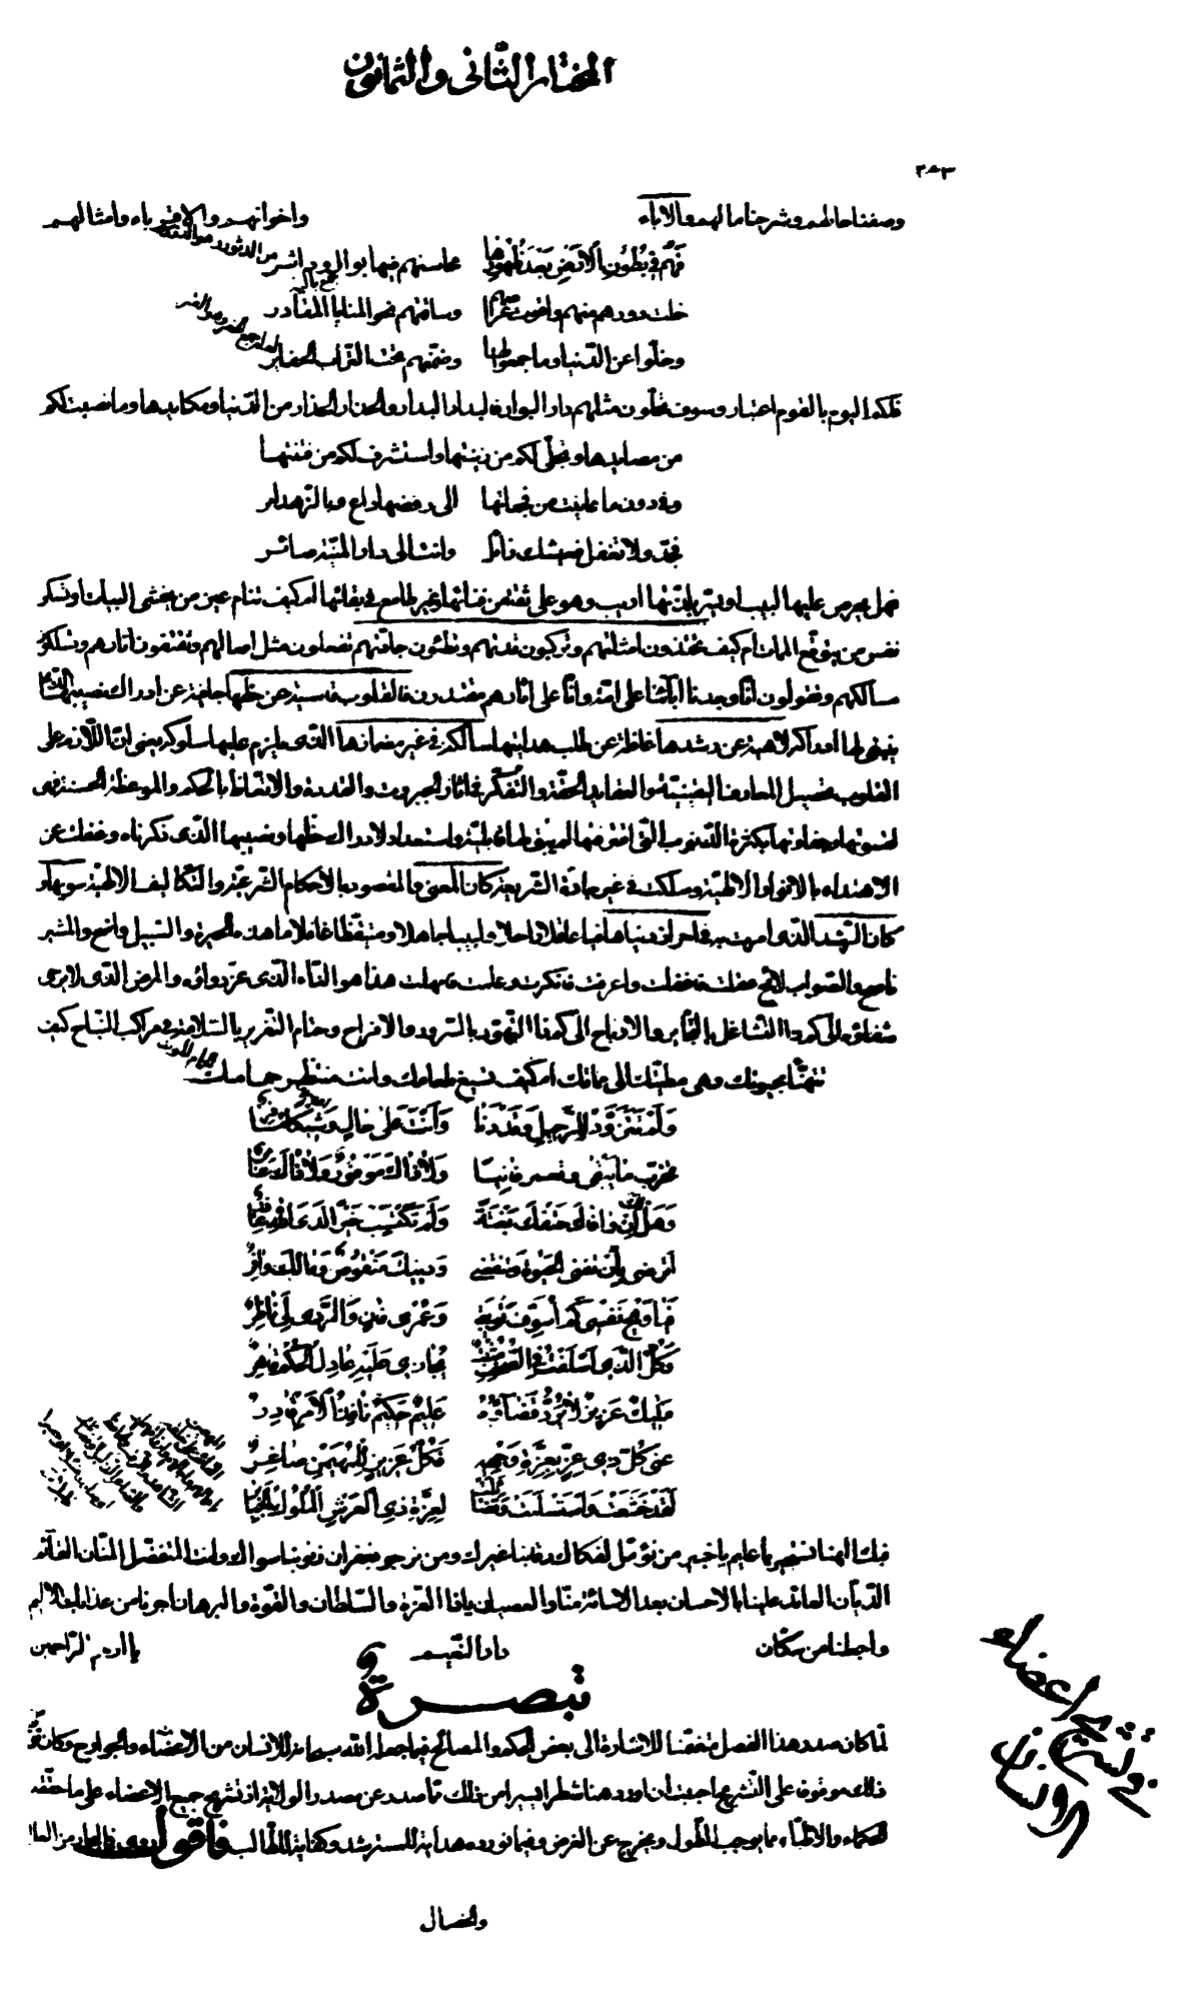 المختار الثانى والثمانون
٣٨٣
وصفنا حالهم وشرحنا مالهم والاباء واخوانهم والاقرباء وامثالهم
فَهُم في بُطُونِ الأَرضِ بَعدَ ظُهُورِها محاسنهم فيها بوال دواثر
خلت دورهم منهم واقوت عراصهم وساقتهم نحو المنايا المقادر
وخلّوا عن الدّنيا وما جمعوا لها وضمّتهم تحت التراب الحفاير
من الدثور وهو الدروس
جمع بالية
فلكم اليوم بالقوم اعتبار وسوف تحلّون مثلهم دار البوار فالبدار البدار والحذار الحذار من الدّنيا ومكايدها وما نصبت لكم
من مصايدها وتجلّى لكم من زينتها واستشرف لكم من فتنتها
وفى دون ما عاينت من فجعاتها الى رفضها داع وبالزّهد امر
فجدّ ولا تغفل فعيشك زائل وانت الى دار المنيّة صائر
فهل يحرص عليها لبيب او يسرّ بلذّتها اريب وهو على ثقة من فنائها وغير طامع فى بقائها ام كيف تنام عين من يخشى البيات او تسكن
نفس من يتوقّع الممات ام كيف تحتذون امثلتهم وتركبون قدتهم وتطئون جادّتهم تفعلون مثل افعالهم وتقتفون آثارهم وتسلكون
مسالكهم وتقولون انّا وجدنا آبائنا على امّة وانّا على آثارهم مقتدون فالقلوب قاسية عن حظّها جافية عن ادراك نصيبها الذى
ينبغى لها ادراكه لاهية عن رشدها غافلة عن طلب هدايتها سالكة فى غير مضمارها الذى يلزم عليها سلوكه يعنى انّ اللازم على
القلوب تحصيل المعارف اليقينيّة والعقايد الحقّة والتفكّر فى اثار الجبروت والقدرة والاتعاظ بالحكم والموعظة الحسنة فهى
لقسوتها وجفاوتها بكثرة الذنوب التى اقترفتها لم يبق لها قابلية واستعداد لادراك حظّها ونصيبها الذى ذكرناه وغفلت عن
الاهتداء بالانوار الالهيّة وسلكت فى غير جادّة الشريعة كان المعنىّ والمقصود بالاحكام الشرعيّة والتكاليف الالهيّة سويها و
كان الرّشد الذى امرت به فى احراز دنياها فيا عاقلا راحلا ولبيبا جاهلا ومتيقّظا غافلا ما هذه الحيرة والسبيل واضح والمشير
ناصح والصّواب لائح عقلت فاغفلت واعرفت فانكرت وعلمت فاهملت هذا هو الدّاء الذى عزّ دواؤه والمرض الذى لا يرجى
شفاؤه الى كم ذا التشاغل بالتجاير والارباح الى كم ذا التهوّر بالسّرور والافراح وحتام التغرير بالسّلامة فى مراكب النيّاح كيف
تتهنّأ بحيوتك وهى مطيّتك الى مماتك ام كيف تسيغ طعامك وانت منتظر حمامك
وَلَم تَتَزَوَّد للرَّحيلِ وَقَد دَنا وَأَنتَ عَلى حالٍ وَشيكٍ مُسافِر
تخرّب ما يَبقى وتعمر فانيا ولا ذاكَ مَوفورٌ وَلا ذاكَ عامِر
وَهَل لَكَ اِن وافاكَ حَتفُكَ بَغتَةً وَلَم تَكتَسِب خَيراً لَدَى اللهِ عاذِر
اترضى بأن تفنى الحيوة وتنقضى وَدينُكَ مَنقوصٌ وَمالُكَ وافِر
فَيا وَيحَ نَفسى كَم اُسَوِّفُ تَوبَتى وَعُمرى فانٍ وَالرَّدى لِى ناظِر
وَكُلُّ الَّذى اَسلَفتُ فى الصُّحفِ مُثبَتٌ يُجازى عَلَيهِ عادِلُ الحُكمِ قاهِر
مَليكٌ عَزيزٌ لا يُرَدُّ قَضاؤُهُ عَليمٌ حَكيمٌ نافِذُ الاَمرِ قادِر
عنى كُلُّ ذى عِزٍّ لِعِزَّةِ وَجهِهِ فَكُلُّ عَزيزٍ لِلمُهَيمِنِ صاغِر
لَقَد خَضَعَت وَاستَسلَمَت وَتَضاءَلَت لِعِزَّةِ ذى العَرشِ المُلوكُ الجَبابِر
فبك الهنا نستجير يا عليم يا خبير من نؤمّل لفكاك رقابنا غيرك ومن نرجو لغفران ذنوبنا سواك وانت المتفضّل المنّان القائم
الدّيّان العائد علينا بالاحسان بعد الاسائة منّا والعصيان يا ذا العزّة والسّلطان والقوّة والبرهان اجرنا من عذابك الاليم
واجعلنا من سكّان دار النّعيم يا ارحم الرّاحمين
تبصرة
لمّا كان صدر هذا الفصل متضمّنا للاشارة الى بعض الحكم والمصالح فيما جعله الله سبحانه للانسان من الاعضاء والجوارح وكان
ذلك موقوفا على التّشريح احببت أن اورد هنا شطرا يسيرا من ذلك ممّا صدر عن مصدر الولاية اذ تشريح جميع الاعضاء على ما حقّقه
الحكماء والاطبّاء ممّا يوجب الطّول ويخرج عن الغرض وفيما نورده هداية للمسترشد وكفاية للطّالب فاقول روى فى البحار من العلل
فى تشريح اعضاء
الانسان
والخصال